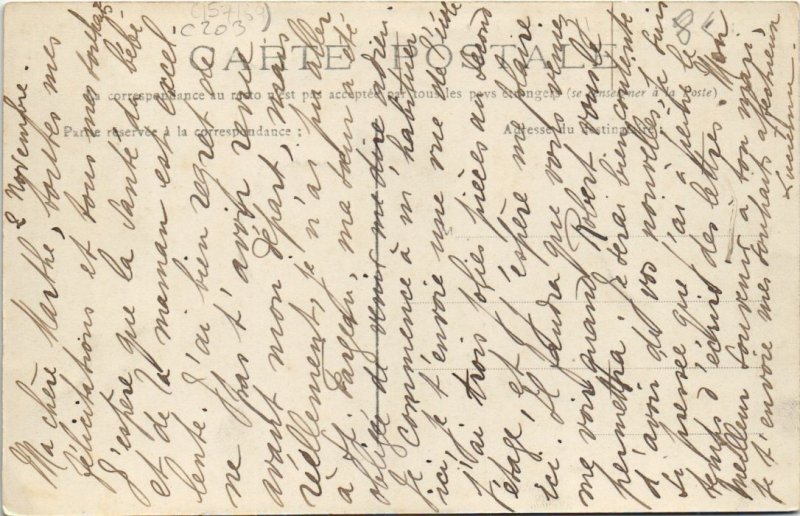 (57/59)
C203
8
CARTE POSTALE
La correspondance au recto n'est pas acceptée par tous les pays étrangers (se renseigner à la Poste)
Partie réservée à la correspondance :
Adresse du destinataire :
M
2 Novembre.
Ma chère Marthe, toutes mes
félicitations et tous mes souhaits
J'espère que la santé de bébé
et de la maman est excel
lente. J'ai bien regretté de
ne pas t'avoir revue
avant mon départ, mais
réellement, je n'ai pu aller
à St. Fargeau, ma sœur a été
obligée de venir me dire adieu.
Je commence à m'habituer
ici, je t'envoie une vue de la ville
J'ai trois jolies pièces au second
étage, et j'espère me plaire
ici. Il faudra que vous veniez
me voir quand Robert vous le
permettra. Je serai bien contente
d'avoir de vos nouvelles, je suis
si pressée que j'ai à peine le
temps d'écrire des lettres. Mon
meilleur souvenir à ton mari
Je t'envoie mes souhaits affectueux